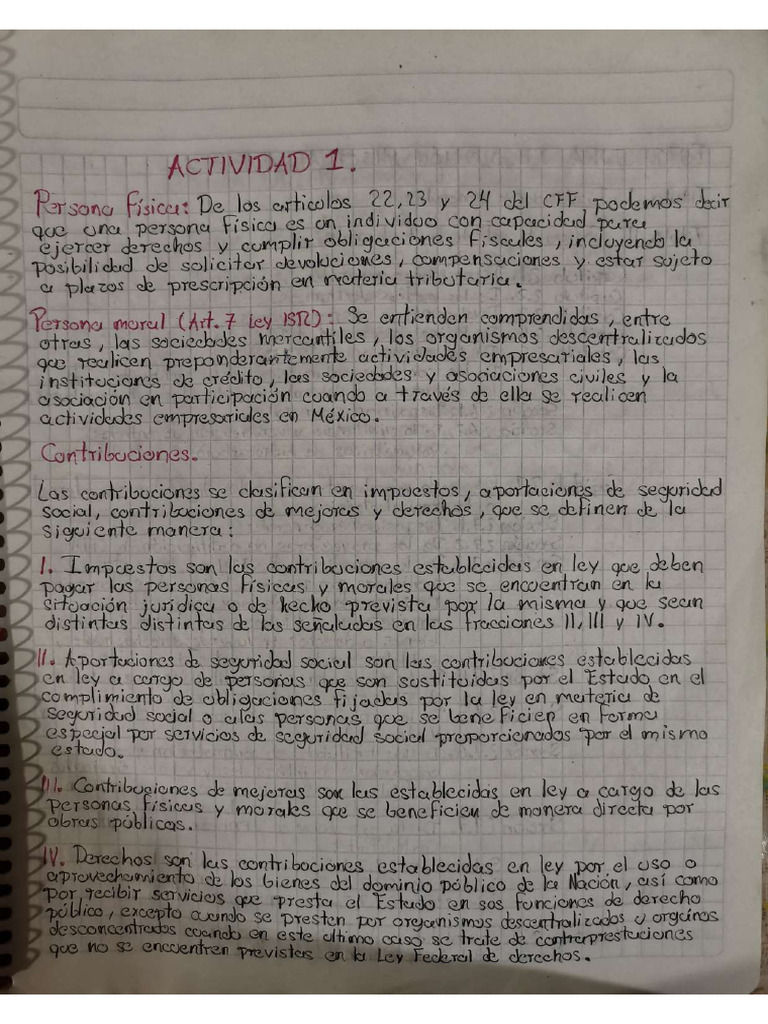 ACTIVIDAD 1.
Persona Física: De los articulos 22, 23 y 24 del CFF podemos decir
que una persona física es un individuo con capacidad para
ejercer derechos y cumplir obligaciones fiscales, incluyendo la
posibilidad de solicitar devoluciones, compensaciones y estar sujeto
a plazos de prescripción en materia tributaria.
Persona moral (Art. 7 Ley ISR): Se entienden comprendidas, entre
otras, las sociedades mercantiles, los organismos descentralizados
que realicen preponderantemente actividades empresariales, las
instituciones de crédito, las sociedades y asociaciones civiles y la
asociación en participación cuando a través de ella se realicen
actividades empresariales en México.
Contribuciones.
Las contribuciones se clasifican en impuestos, aportaciones de seguridad
social, contribuciones de mejoras y derechos, que se definen de la
siguiente manera:
I. Impuestos son las contribuciones establecidas en ley que deben
pagar las personas físicas y morales que se encuentran en la
situación jurídica o de hecho prevista por la misma y que sean
distintas distintas de las señaladas en las fracciones II, III y IV.
II. Aportaciones de seguridad social son las contribuciones establecidas
en ley a cargo de personas que son sustituidas por el Estado en el
complimiento de obligaciones fijadas por la ley en materia de
seguridad social o a las personas que se beneficien en forma
especial por servicios de seguridad social proporcionados por el mismo
estado.
III. Contribuciones de mejoras son las establecidas en ley a cargo de las
personas físicas y morales que se beneficien de manera directa por
obras públicas.
IV. Derechos son las contribuciones establecidas en ley por el uso o
aprovechamiento de los bienes del dominio público de la Nación, así como
por recibir servicios que presta el Estado en sus funciones de derecho
público, excepto cuando se presten por organismos descentralizados u orgános
desconcentrados cuando en este último caso se trate de contraprestaciones
que no se encuentren previstas en la Ley Federal de derechos.